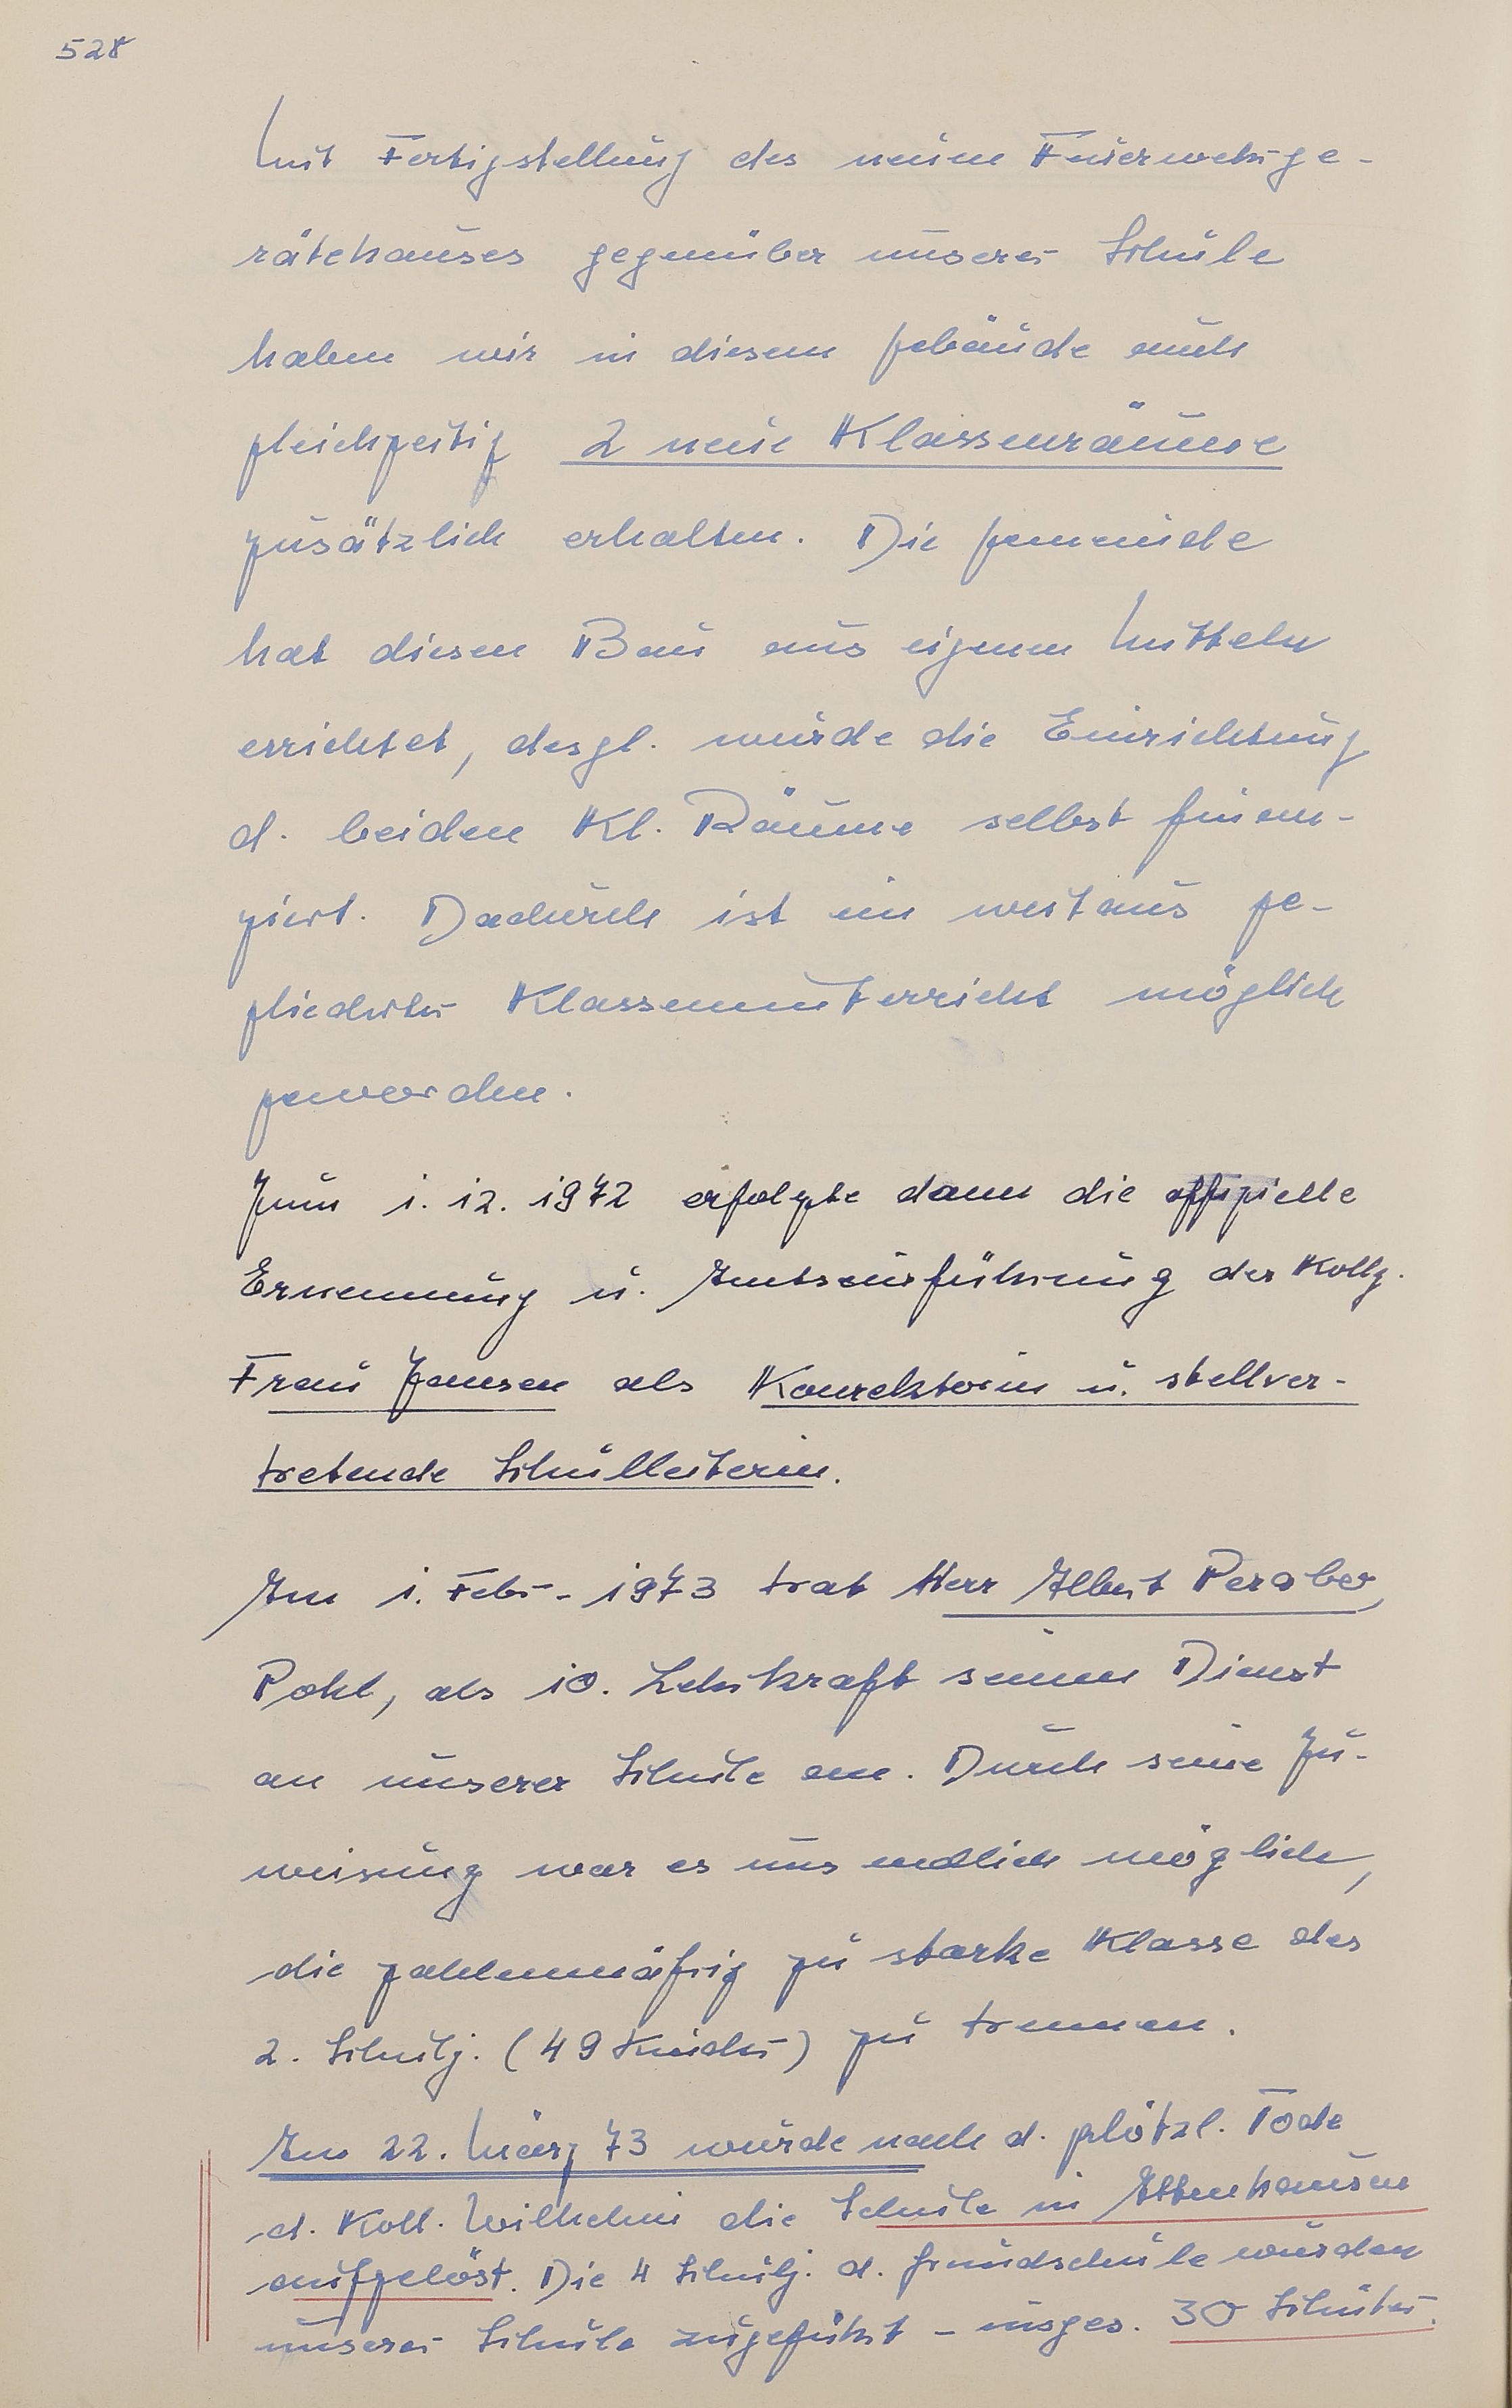 528
Mit Fertigstellung des neuen Feuerwehrge-
rätehauses gegenüber unserer Schule
haben wir in diesem Gebäude auch
gleichzeitig 2 neue Klassenräume
zusätzlich erhalten. Die Gemeinde
hat diesen Bau aus eigenen Mitteln
errichtet, desgl. wurde die Einrichtung
d. beiden Kl. Räume selbst finan-
ziert. Dadurch ist ein weitaus ge-
gliederter Klassenunterricht möglich
geworden.
Zum 1. 12. 1972 erfolgte dann die offizielle
Ernennung u. Amtseinführung der Kollg.
Frau Jansen als Konrektorin u. stellver-
tretende Schulleiterin.
Am 1. Febr. 1973 trat Herr Albert
Pohl, als 10. Lehrkraft seinen Dienst
an unserer Schule an. Durch seine Zu-
weisung war es uns endlich möglich,
die zahlenmäßig zu starke Klasse des
2. Schulj. (49 Kinder) zu trennen.
Am 22. März 73 wurde nach d. plötzl. Tode
d. Koll. Wilhelmi die Schule in Attenhausen
aufgelöst. Die 4 Schulj. d. Grundschule wurden
unserer Schule zugeführt - insges. 30 Schüler.